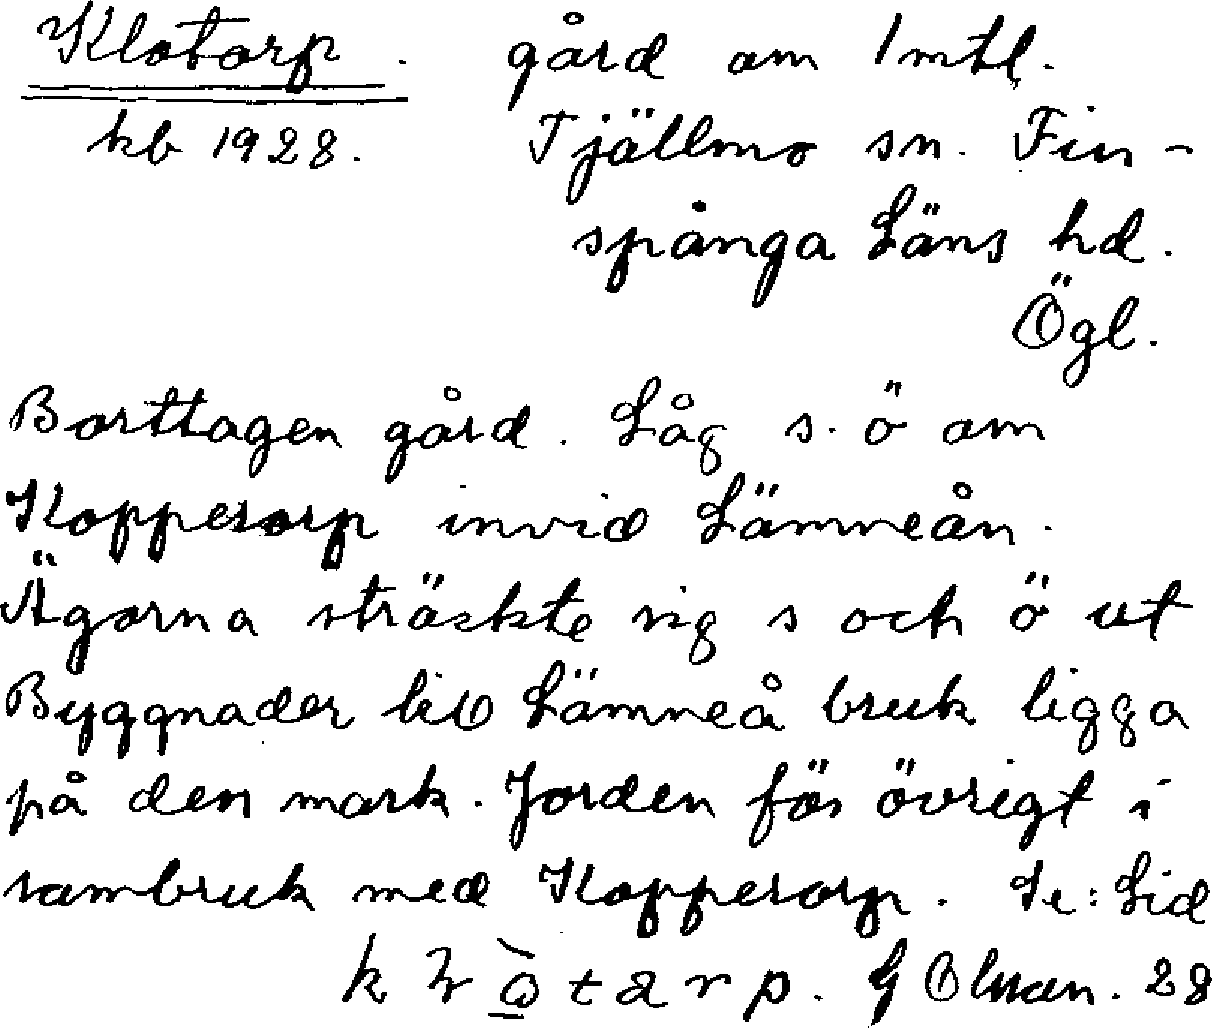 Klotorp. gård om 1 mtl.
kb 1928. Tjällmo sn. Fin-
spånga Läns hd.
Ögl.
Borttagen gård. Låg s. ö om
Koppetorp invid Lämneån.
Ägorna sträckte sig s och ö ut
Byggnader till Lämneå bruk ligga
på den mark. Jorden för övrigt i
sambruk med Koppetorp. Se: Lid
G Olsson. 28